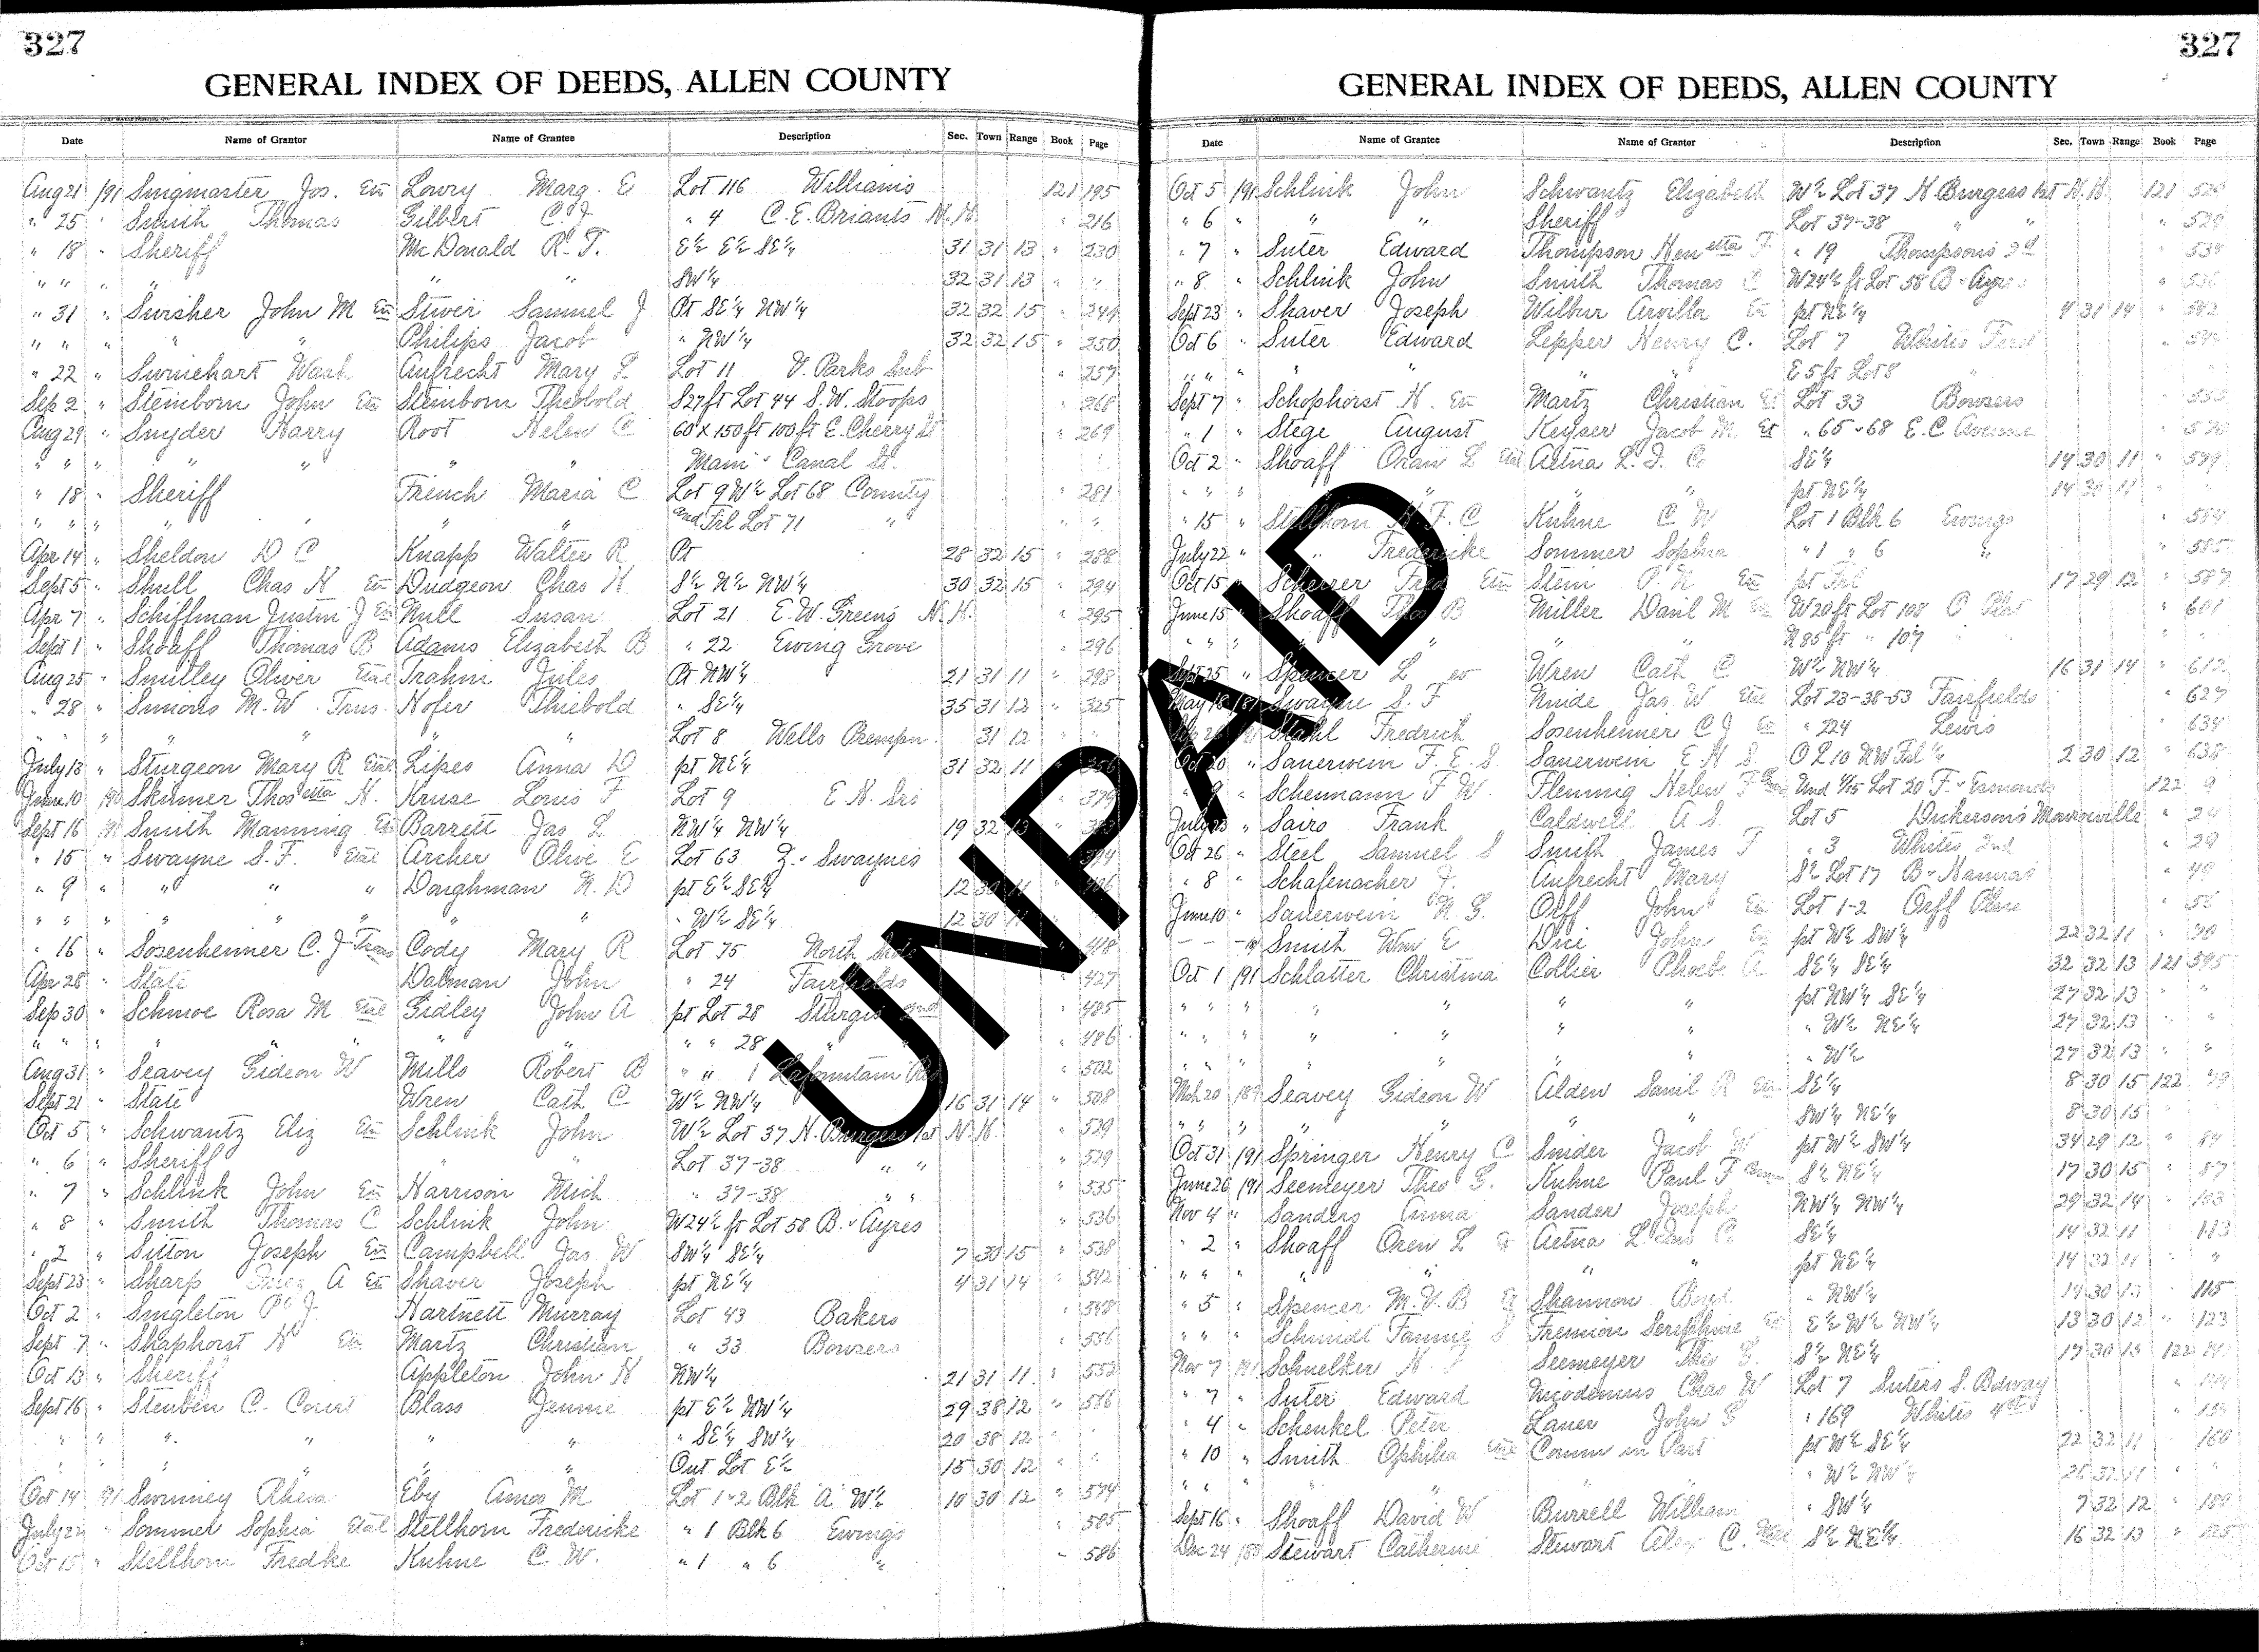 327
GENERAL INDEX OF DEEDS, ALLEN COUNTY
Date Name of Grantor Name of Grantee Description Sec. Town Range Book Page
Aug 21 191 Singmaster Jos. Etu Lowry Marg. E Lot 116 Williams 121 195
" 25 " Smith Thomas Gilbert C. J. " 4 C. E. Briants N. H. " 216
" 18 " Sheriff McDonald R. T. E½ E½ SE¼ 31 31 13 " 230
" " " " " SW¼ 32 31 13 " "
" 31 " Swisher John M Etu Stiver Samuel J Pt SE¼ NW¼ 32 32 15 " 249
" " " " " Philips Jacob " NW¼ 32 32 15 " 250
" 22 " Swinehart Aufrecht Mary L Lot 11 V. Parks Sub " 257
Sep 2 " Steinborn John Etu Steinborn Theobold S27ft Lot 44 S. W. Stoops " 268
Aug 29 " Snyder Harry Root Helen C 60 x 150 ft 100 ft E. Cherry St " 269
" " " " " " " Main & Canal St.
" 18 " Sheriff French Maria C Lot 9 W½ Lot 68 County " 281
" " " " " " and Frl Lot 71 " " "
Apr 14 " Sheldon D C Knapp Walter R Pt 28 32 15 " 288
Sept 5 " Shull Chas H Etu Dudgeon Chas H S½ N½ NW¼ 30 32 15 " 294
Apr 7 " Schiffman Justin J Etu Null Susan Lot 21 E. W. Greens N. H. " 295
Sept 1 " Shoaff Thomas B Adams Elizabeth B " 22 Ewing Grove " 296
Aug 25 " Smitley Oliver Etal Trahin Jules Pt NW¼ 21 31 11 " 298
" 28 " Simons M. W. Trus. Hofer Thiebold " SE¼ 35 31 12 " 325
" " " " " Lot 8 Wells Prempn. 31 12 " "
July 13 " Sturgeon Mary R Etal Lipes Anna D pt NE¼ 31 32 11 " 356
June 10 190 Skinner Thos etta H. Kruse Louis F Lot 9 E. H. " 379
Sept 16 191 Smith Manning Etu Barrett Jas L NW¼ NW¼ 19 32 13 "
" 15 " Swayne S. F. Etal Archer Olive E Lot 63 Z. & Swaynes 394
" 9 " " " " Doughman N. D pt E½ SE¼ 12 30 11 " 406
" " " " " " " " W½ SE¼ 12 30 11 "
" 16 " Sosenheimer C. J Trus Cody Mary R Lot 75 North Side " 418
Apr 28 " State Dalman John " 24 Fairfields " 427
Sep 30 " Schmoe Rosa M Etal Gidley John A pt Lot 28 Sturgis 2nd " 485
" " " " " " " 28 " " 486
Aug 31 " Seavey Gideon W Mills Robert B " " 1 Lafountain Res " 502
Sept 21 " State Wren Cath C W½ NW¼ 16 31 14 " 508
Oct 5 " Schwantz Eliz Etu Schlink John W½ Lot 37 H. Burgess 1st N. H. " 529
" 6 " Sheriff " " Lot 37-38 " " " 529
" 7 " Schlink John Etu Harrison Mich " 37-38 " " " 535
" 8 " Smith Thomas C Schlink John W24½ ft Lot 58 B. & Ayres " 536
" 2 " Sitton Joseph Etu Campbell Jas W SW¼ SE¼ 7 30 15 " 538
Sept 23 " Sharp A Etu Shaver Joseph pt NE¼ 4 31 14 " 542
Oct 2 " Singleton P. J. Hartnett Murray Lot 43 Bakers " 548
Sept 7 " Shaphorst H Etu Martz Christian " 33 Bowsers " 556
Oct 13 " Sheriff Appleton John H NW¼ 21 31 11 " 552
Sept 16 " Steuben C. Court Blass Jennie pt E½ NW¼ 29 38 12 " 566
" " " " " " " " SE¼ SW¼ 20 38 12 " "
" " " " " " " Out Lot E½ 15 30 12 " "
Oct 14 191 Swinney Rhesa Eby Amos M Lot 1-2 Blk "A" W½ 10 30 12 " 574
July 22 " Sommer Sophia Etal Stellhorn Fredericke " 1 Blk 6 Ewings " 585
Oct 15 " Stellhorn Fredke Kuhne C. W. " 1 " 6 " " 586
UNPAID
327
GENERAL INDEX OF DEEDS, ALLEN COUNTY
Date Name of Grantee Name of Grantor Description Sec. Town Range Book Page
Oct 5 191 Schlink John Schwantz Elizabeth W½ Lot 37 H. Burgess 1st N. H. 121 529
" 6 " " " Sheriff Lot 37-38 " " " 529
" 7 " Suter Edward Thompson Hen etta F " 19 Thompsons 2d " 534
" 8 " Schlink John Smith Thomas C W24½ ft Lot 58 B & Ayres " 536
Sept 23 " Shaver Joseph Wilbur Arvilla Etu pt NE¼ 4 31 14 " 542
Oct 6 " Suter Edward Lepper Henry C. Lot 7 Whites "
" " " " " " " E 5 ft Lot 8 "
Sept 7 " Schophorst H. Etu Martz Christian Et Lot 33 Bowsers "
" 1 " Stege August Keyser Jacob M. Et " 65 & 68 E. C Avenue " 570
Oct 2 " Shoaff Oran L Etal Aetna L. I. Co SE¼ 14 30 11 "
" " " " " " pt NE¼ 14 30 11 "
" 15 " Stellhorn H. F. C Kuhne C W Lot 1 Blk 6 Ewings " 584
July 22 " " Fredericke Sommer Sophia " 1 " 6 " " 585
Oct 15 " Scherzer Fred Etu Stein P. N Etu pt Frl 17 29 12 " 587
June 15 " Shoaff Thos B Miller Danl M W20 ft Lot 108 O Plat " 601
" " " " " " N 85 ft " 107 "
Sept 25 " Spencer L Wren Cath C W½ NW¼ 16 31 14 " 612
May 18 181 Swayne S. F Nuide Jas W Etal Lot 23-38-53 Fairfields " 627
Sep 26 191 Stahl Fredrich Sosenheimer C J Etu " 224 Lewis " 634
Oct 20 " Sauerwein F. E. S Sauerwein E H S. O L 10 NW Frl ¼ 2 30 12 " 638
" 9 " Schemann F W. Fleming Helen F Und 1/15 Lot 20 F. & 122 9
July 23 " Sairo Frank Caldwell A S. Lot 5 Dickersons Monroeville " 24
Oct 26 " Steel Samuel S Smith James F " 3 Whites 2nd " 29
" 8 " Schafenacher J. Aufrecht Mary S½ Lot 17 B & Hannas " 49
June 10 " Sauerwein N. G. Orff John Etu Lot 1-2 Orff Place " 56
- - - Smith Wm E Diri John Etu pt W½ SW¼ 22 32 11 " 70
Oct 1 191 Schlatter Christina Collier Phoebe A SE¼ SE¼ 32 32 13 121 595
" " " " " " " pt NW¼ SE¼ 27 32 13 " "
" " " " " " " " W½ NE¼ 27 32 13 " "
" " " " " " " W½ 27 32 13 " "
Mch 20 189 Seavey Gideon W Alden Saml R Etu SE¼ 8 30 15 122 79
" " " " " " SW¼ NE¼ 8 30 15
Oct 31 191 Springer Henry C Snider Jacob W pt W½ SW¼ 34 29 12 " 84
June 26 191 Seemeyer Theo G. Kuhne Paul F S½ NE¼ 17 30 15 " 87
Nov 4 " Sanders Anna Sander Joseph NW¼ NW¼ 29 32 14 " 103
" 2 " Shoaff Oren L Et Aetna L. Ins Co SE¼ 14 32 11 113
" " " " " " pt NE¼ 14 32 11 "
" 5 " Spencer M. V. B Et Shannon " NW¼ 14 30 115
" " " Schmidt Fannie S Fremion Serephine Etu E½ W½ NW¼ 13 30 12 " 123
Nov 7 191 Schnelker H. F Seemeyer Theo G. S½ NE¼ 17 30 15 122
" 7 " Suter Edward Nicodemus Chas W Lot 7 Suters S. Bdway "
" 4 " Schenkel Peter Lauer John G " 169 Whites 4th " 154
" 10 " Smith Ophilia Etal Comm in Part pt W½ SE¼ 22 32 11 " 160
" " " " " " W½ NW¼ "
Sept 16 " Shoaff David W Burrell William " SW¼ 7 32 12 " 180
Dec 24 188 Stewart Catherine Stewart Alex C. S½ NE¼ 16 32 13 " 185